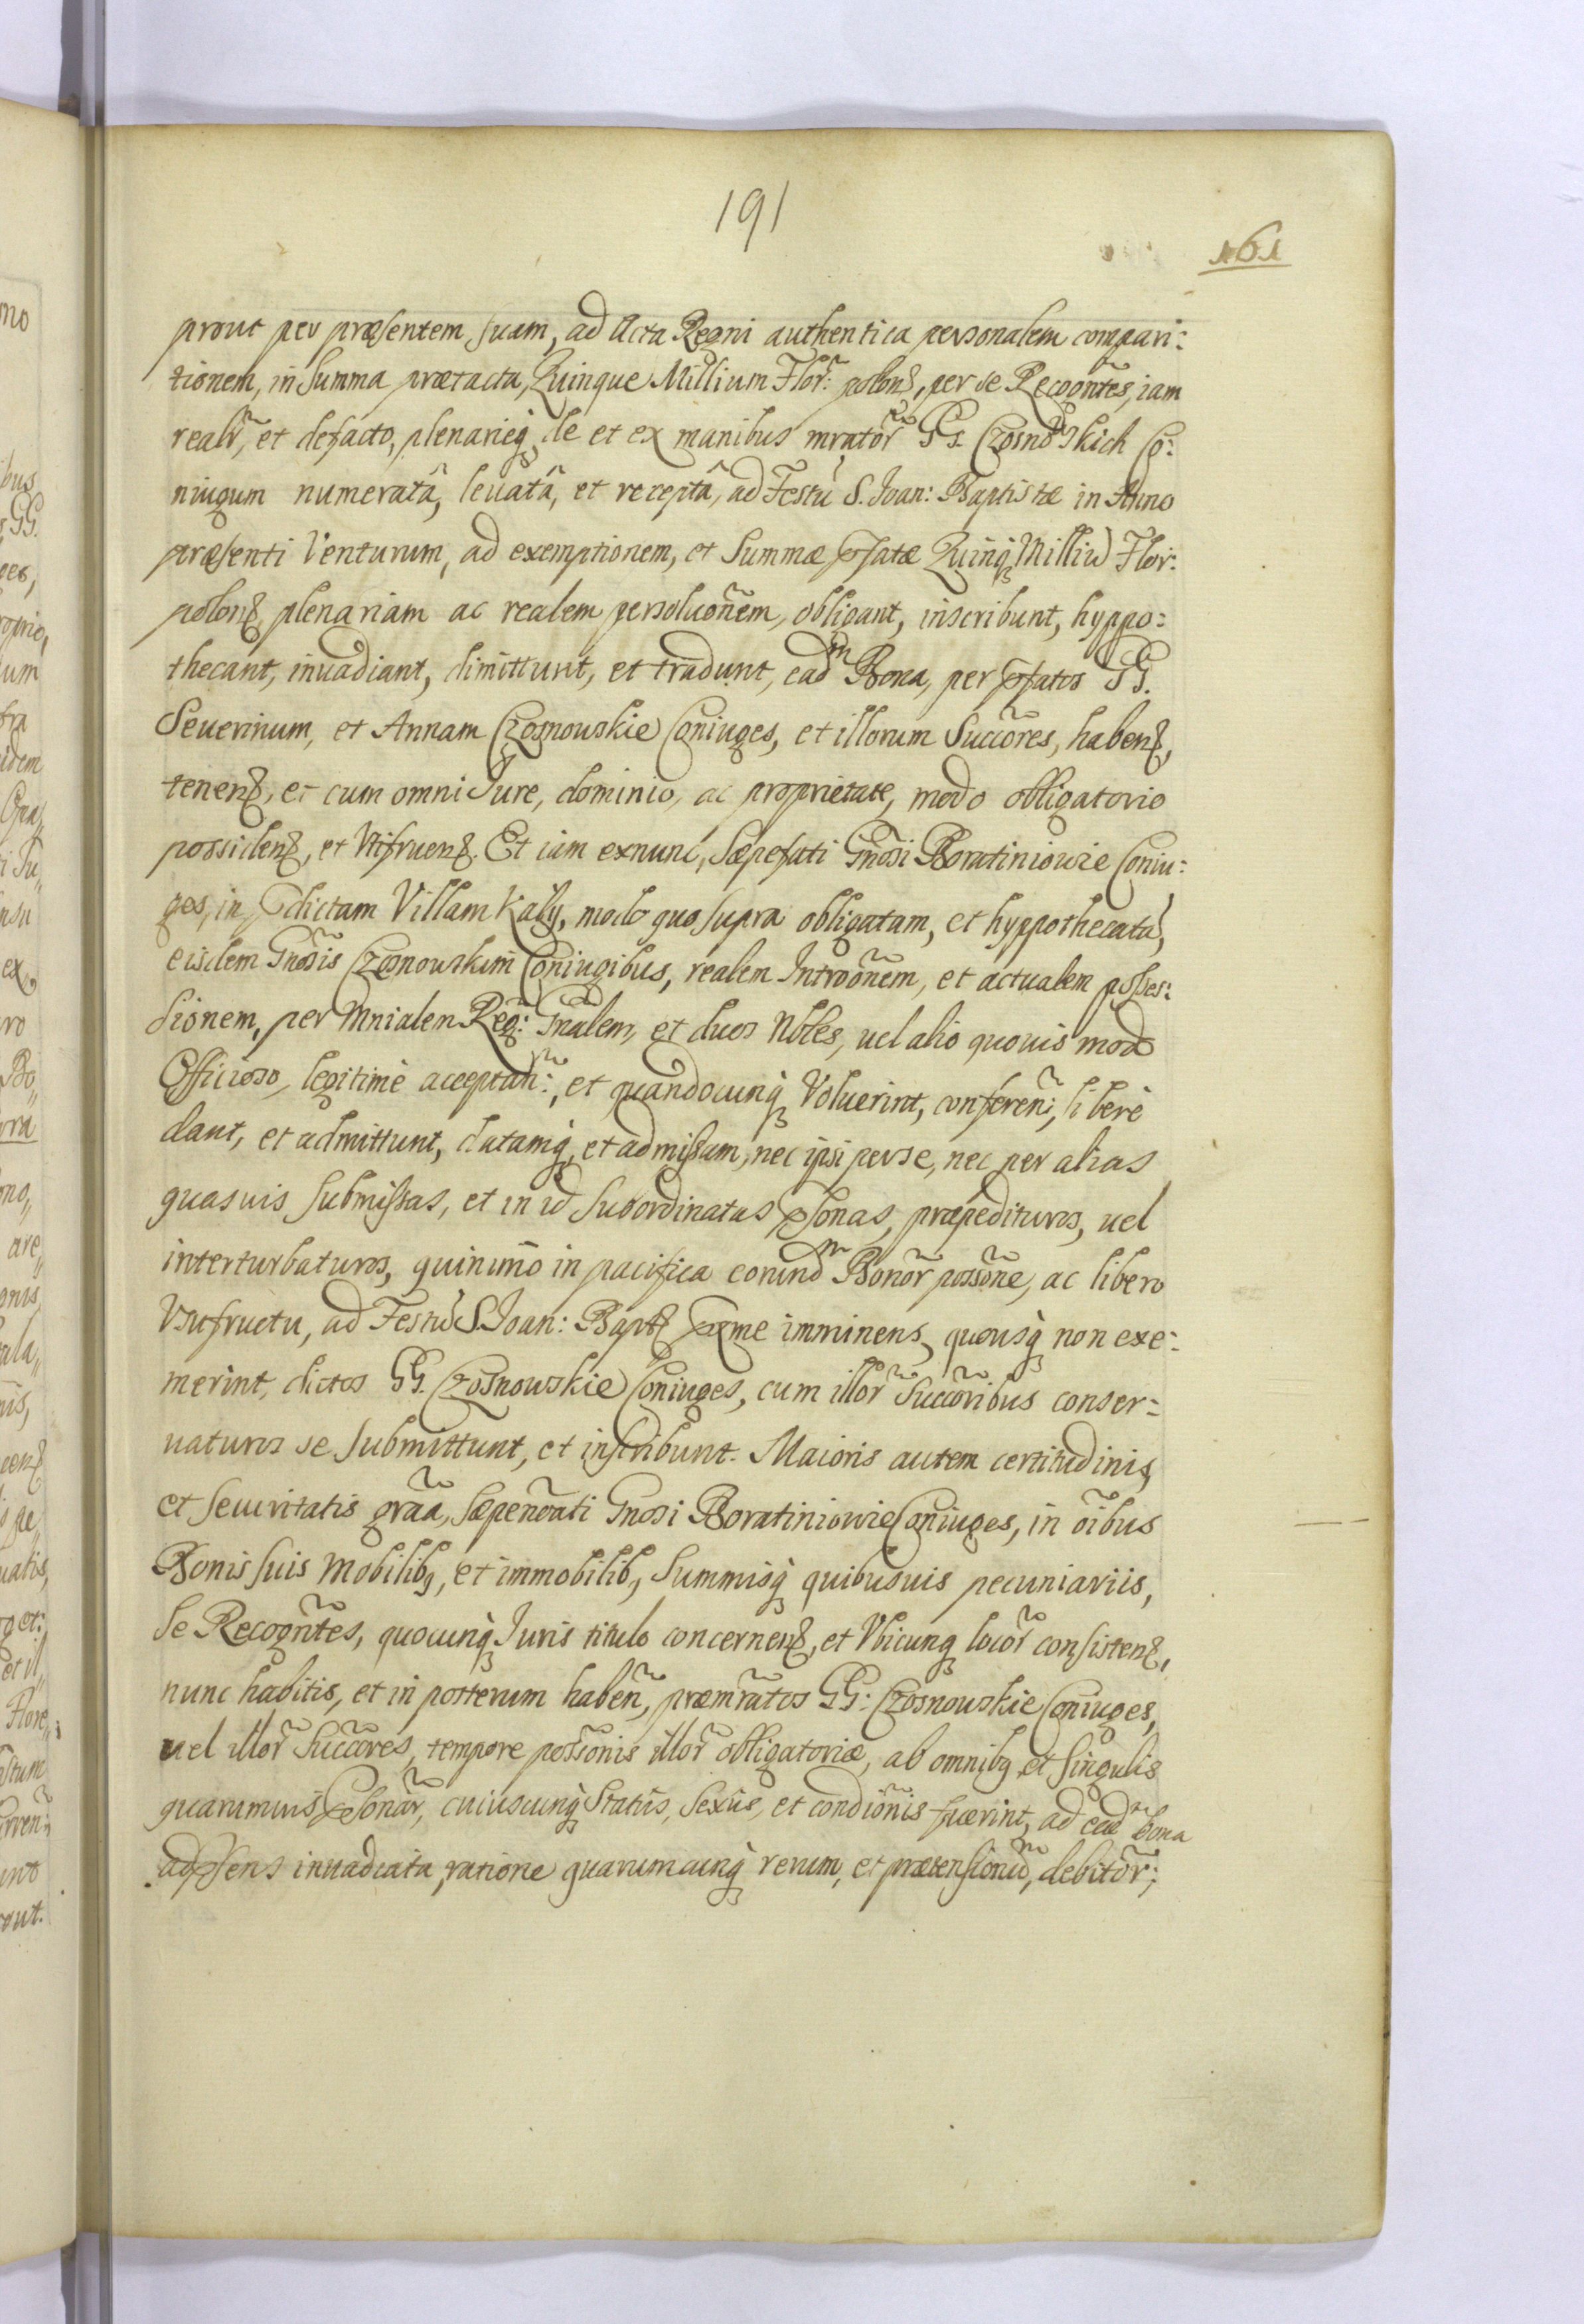 191
161
prout per præsentem suam, ad Acta Regni authentica personalem compari:
tionem, in Summa prætacta, Quinque Millium Flor: polon, per se Recogñtes, iam
realr̃, et defacto, plenarieq, de et ex manibus mratõr GG. Czosnowskich Co:
niugum numeratâ, leuatâ, et receptâ, ad Festũ S. Joan: Baptistæ in Anno
præsenti Venturum, ad exemptionem, et Summæ pfatæ Quinq Milliũ Flor:
polon, plenariam ac realem persoluõnem, obligant, inscribunt, hyppo:
thecant, inuadiant, dimittunt, et tradunt, eadm Bona, per pfatos GG.
Seuerinum, et Annam Czosnowskie Coniuges, et illorum Succõres, haben,
tenen, et cum omni Jure, dominio, ac proprietate, modo obligatorio
possiden, et Vtifruen. Et iam exnunc, sæpefati Gnõsi Boratiniowie Coniu:
ges, in pdictam Villam Kaly, modo quo supra obligatam, et hyppothecatã,
eisdem Gnõsis Czosnowskim Coniugibus, realem Introõnem, et actualem posses:
sionem, per Mnialen Reg: Gnãlem, et duos Nbles, uel alio quouis modo
Officioso, legitimè acceptan:, et quandocunq Voluerint, conferen:, liberè
dant, et admittunt, datamq, et admissam, nec ipsi per se, nec per alias
quasuis submissas, et in id subordinatas psonas, præpedituros, uel
interturbaturos, quinimõ in pacifica eorundm Bonõr possõne, ac libero
Vsufructu, ad Festũ S. Joan: Bapt pxme imminens, quousq non exe:
merint, dictos GG. Czosnowskie Coniuges, cum illõr Succõribus conser:
uaturos se submittunt, et inscribunt. Maioris autem certitudinis,
et securitatis grãa, sæpenõati Gnosi Boratiniowie Coniuges, in õibus
Bonis suis mobilib, et immobilib, Summisq quibusuis pecuniariis,
se Recogñtes, quocunq Juris titulo concernen, et Vbicunq locõr consisten,
nunc habitis, et in posterum habeñ, præmrãtos GG: Czosnowskie Coniuges,
uel illõr Succõres, tempore possõnis illõr obligatoriæ, ab omnibq et singulis
quarumuis psonãr, cuiuscunq Statûs, Sexûs, et condiõnis fuerint, ad eadm bona
ad psens inuadiata, ratione quarumcunq rerum, et prætensionũ, debitõr;